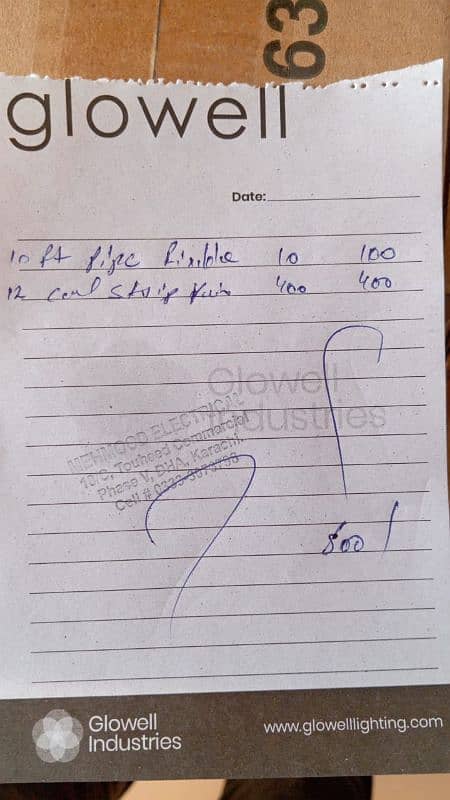 63
glowell
Date:
10 ft Pipe 10 100
12 Strip 400 400
Glowell
Industries
MEHMOOD ELECTRICAL
10/C, Touheed Commercial
Phase V, DHA, Karachi.
Cell #
500/
Glowell
Industries
www.glowelllighting.com